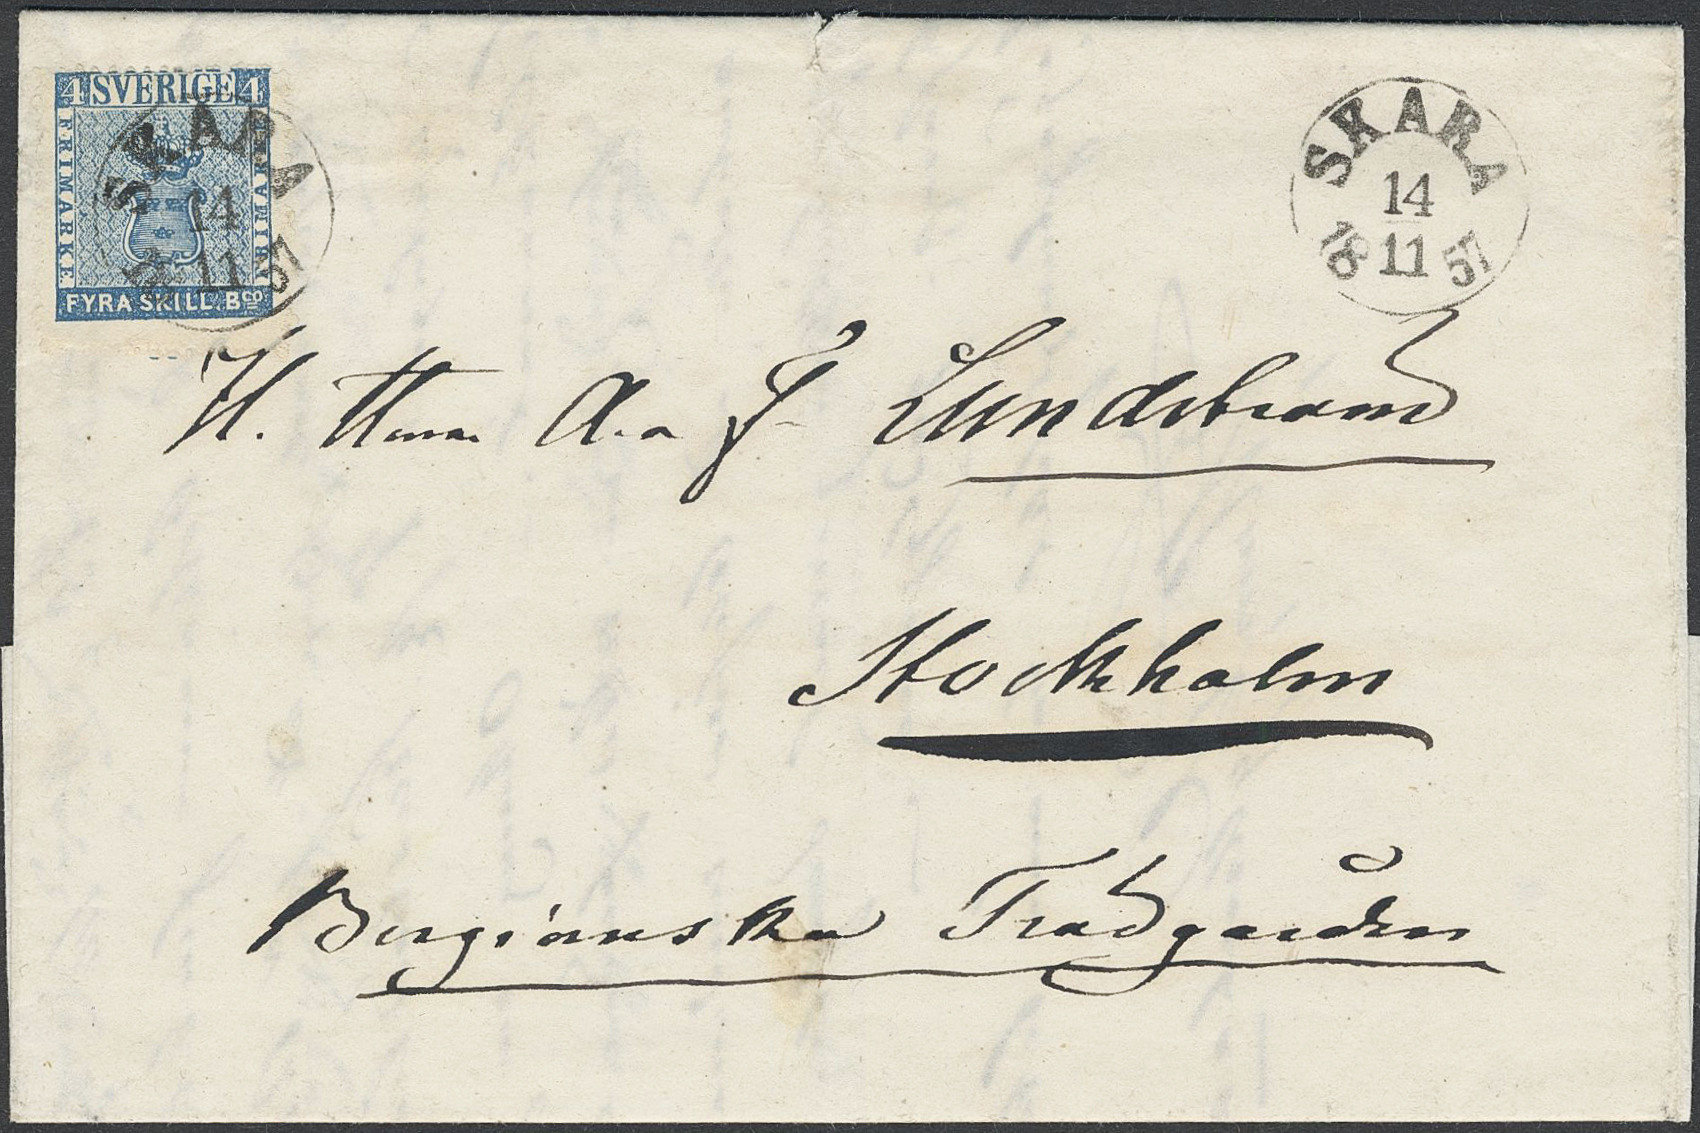 4 SVERIGE 4
FRIMARKE
FYRA SKILL. Bco
SKARA
14
11
1857
SKARA
14
11
1857
H. Herrar A. o J. Lundebrand
Stockholm
Bergianska Trädgården